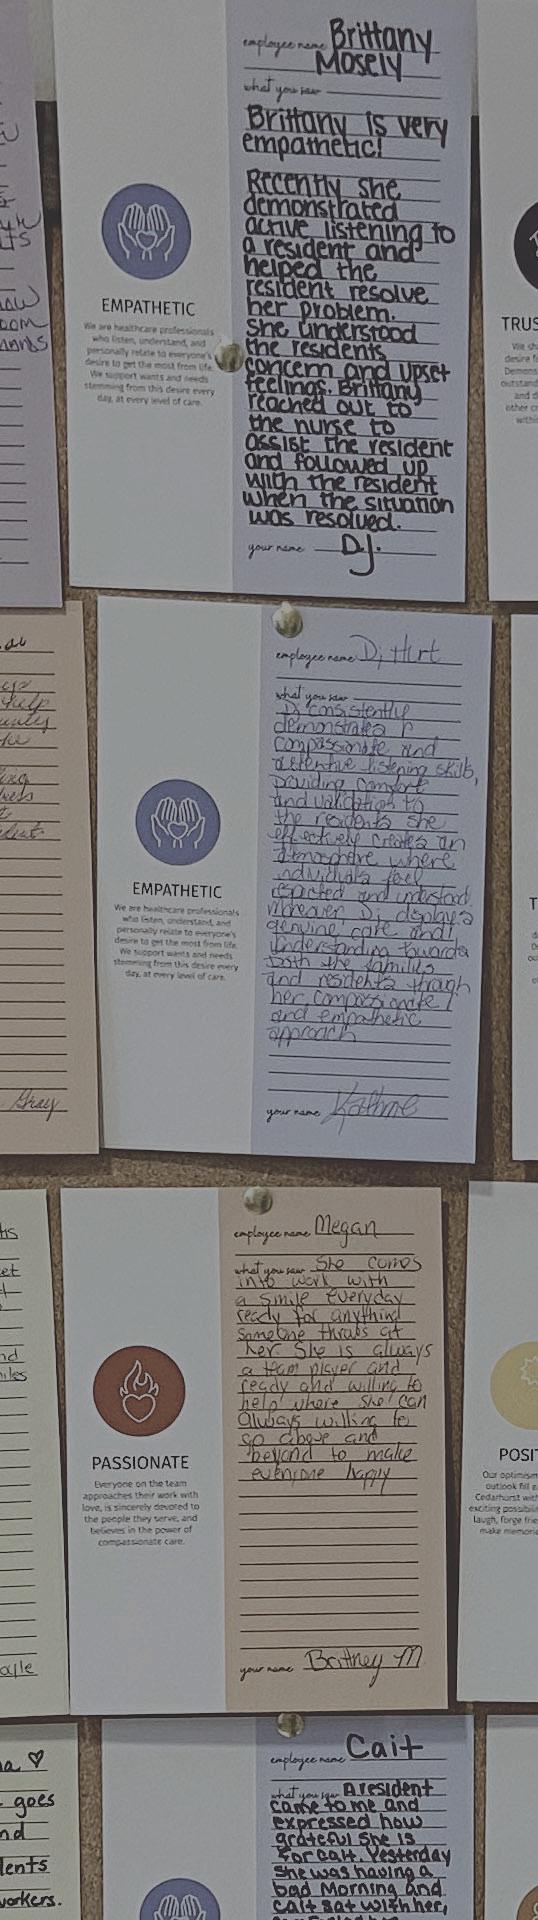 employee name Brittany
Mosely
what you saw
Brittany is very
empathetic!
Recently she
demonstrated
active listening to
a resident and
helped the
resident resolve
her problem.
She understood
the residents
concern and upset
feelings. Brittany
reached out to
the nurse to
assist the resident
and followed up
with the resident
when the situation
was resolved.
your name D.J.
EMPATHETIC
We are healthcare professionals
who listen, understand, and
personally relate to everyone's
desire to get the most from life.
We support wants and needs
stemming from this desire every
day, at every level of care.
TRUS
employee name Dj Hirt
what you saw
Dj consistently
demonstrates
compassionate and
attentive listening skills,
providing comfort
and validation to
the residents she
effectively creates an
atmosphere where
individuals feel
respected and understood.
Moreover Dj displays
genuine care and
understanding towards
both the families
and residents through
her compassionate
and empathetic
approach
your name
EMPATHETIC
We are healthcare professionals
who listen, understand, and
personally relate to everyone's
desire to get the most from life.
We support wants and needs
stemming from this desire every
day, at every level of care.
Gray
employee name Megan
what you saw She comes
into work with
a smile everyday
ready for anything
someone throws at
her. She is always
a team player and
ready and willing to
help where she can
Always willing to
go above and
beyond to make
everyone happy
your name Brittney M
PASSIONATE
Everyone on the team
approaches their work with
love, is sincerely devoted to
the people they serve, and
believes in the power of
compassionate care.
POSIT
Our optimism
outlook fill
Cedarhurst with
exciting possibili
laugh, forge frie
make memorie
employee name Cait
what you saw A resident
came to me and
expressed how
grateful she is
for Cait. Yesterday
she was having a
bad morning and
Cait sat with her,
goes
workers.